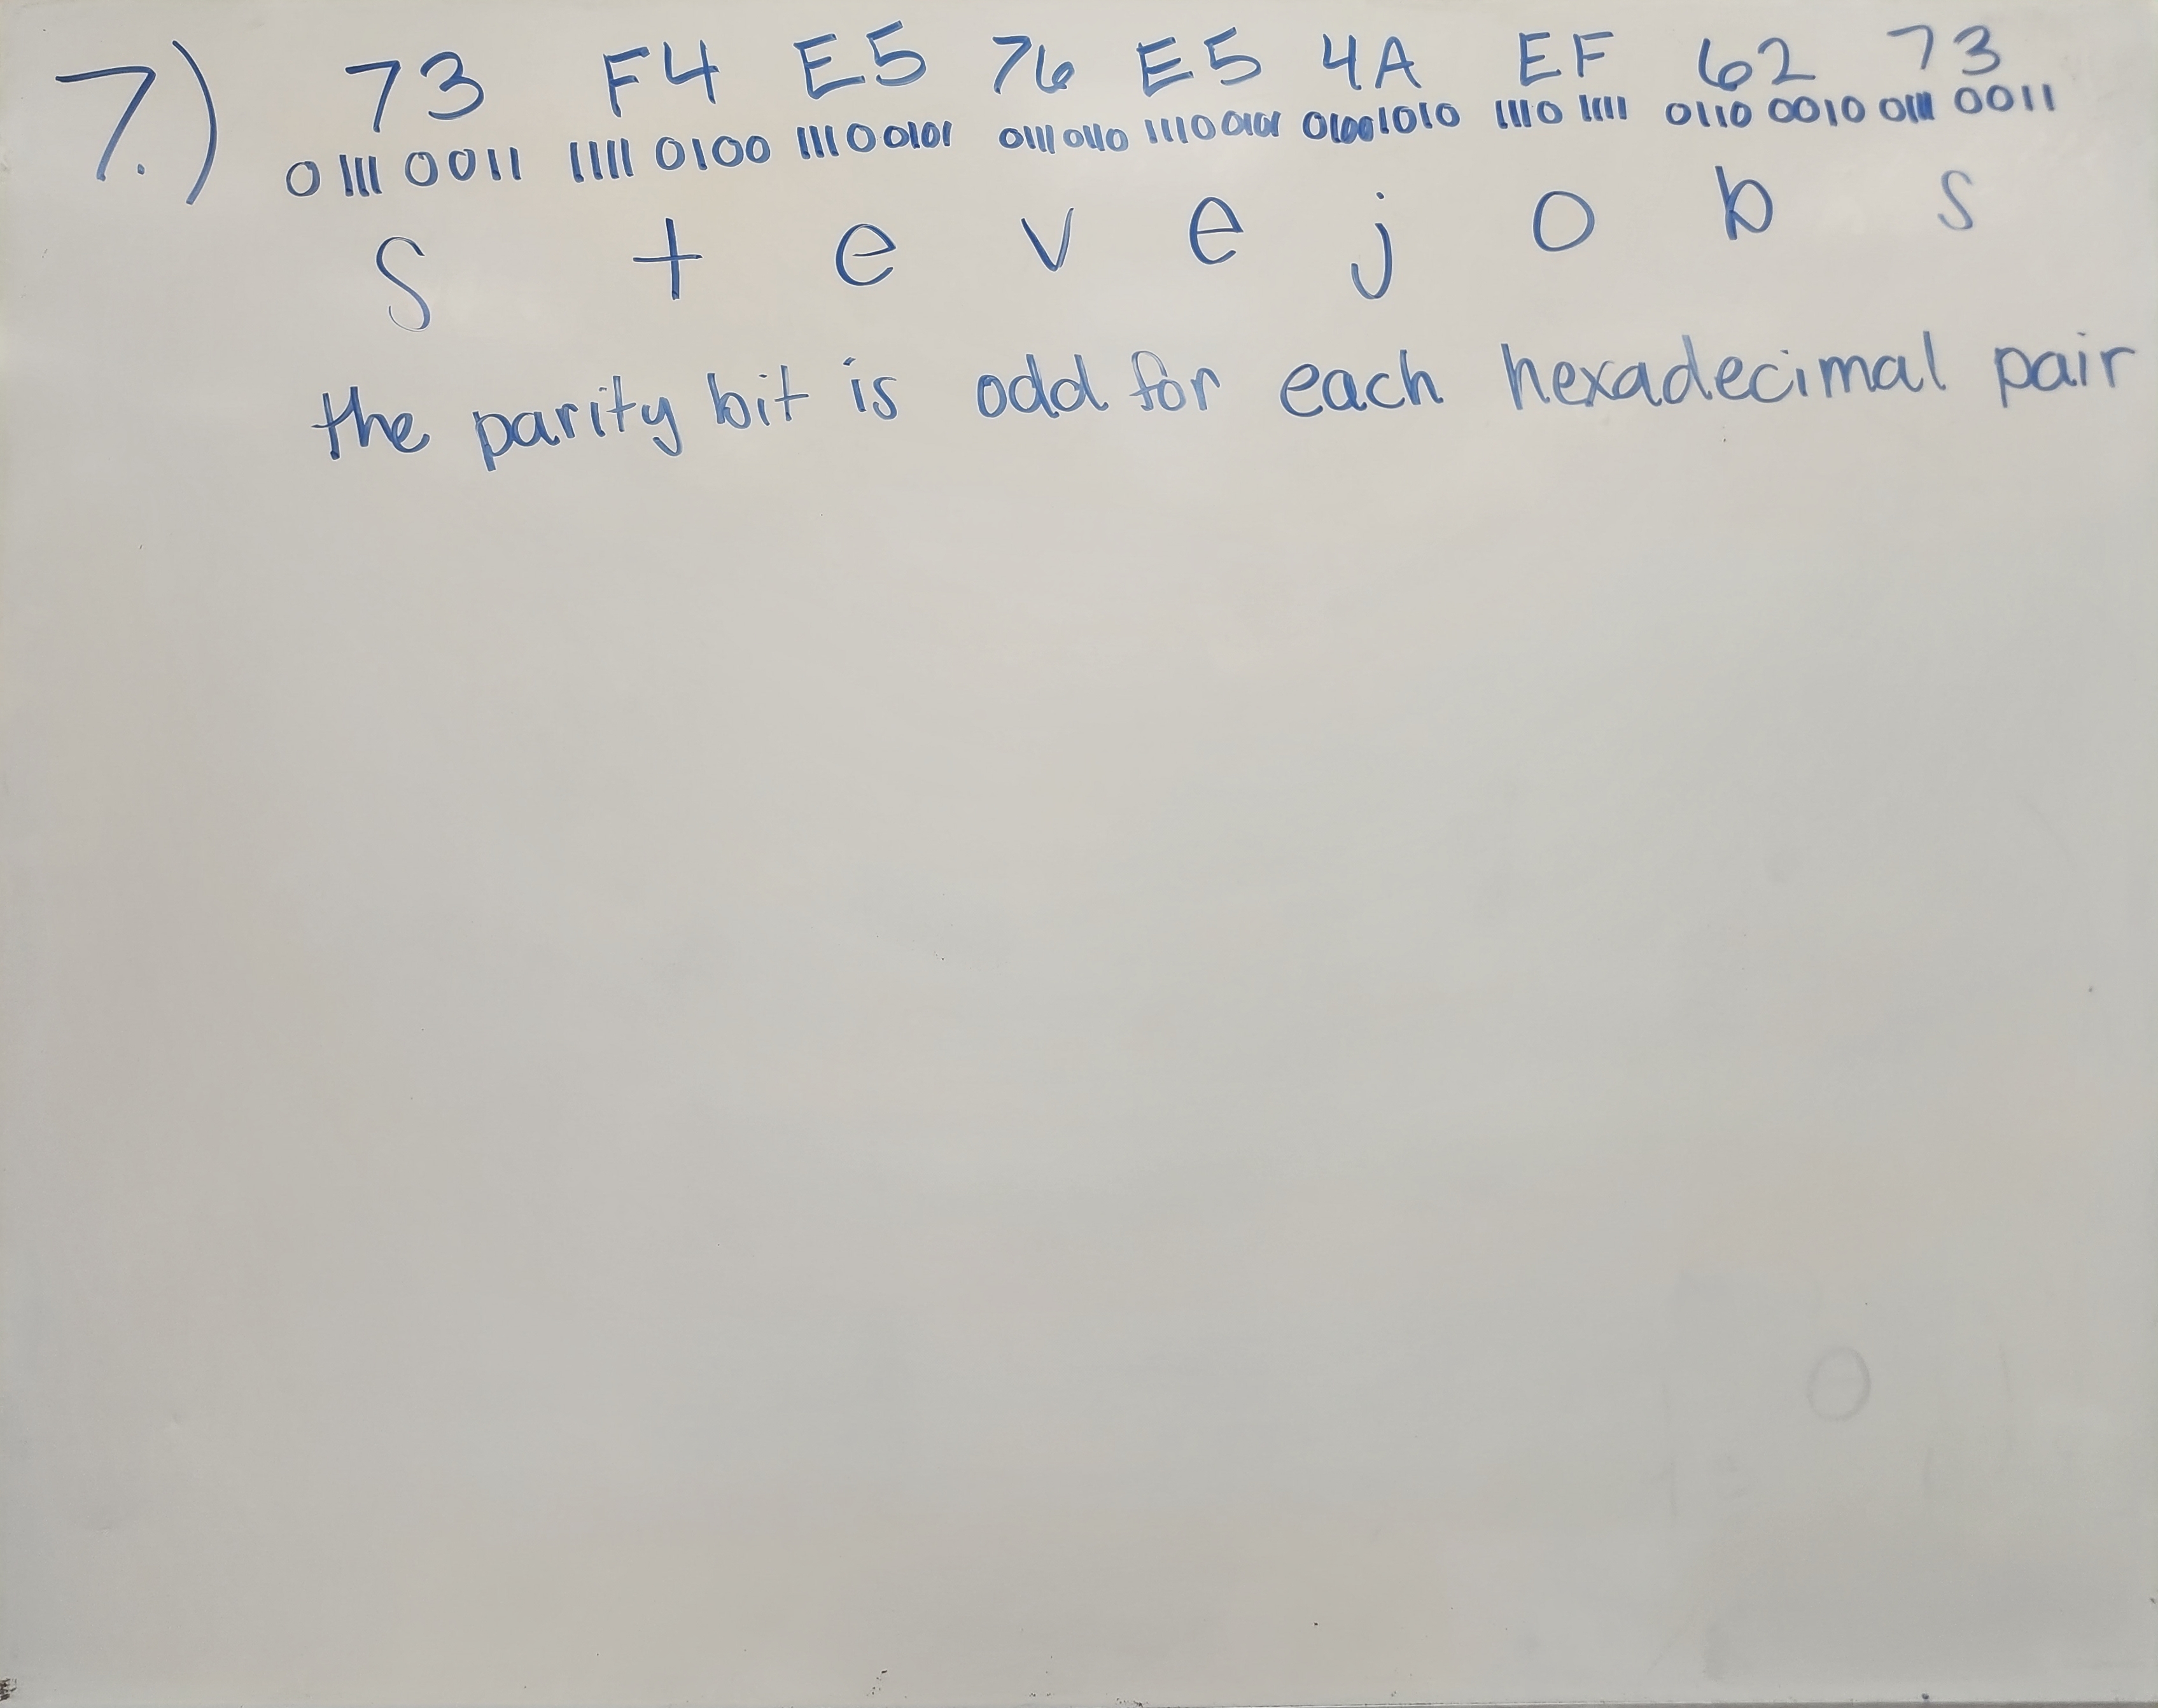 7.) 73 F4 E5 76 E5 4A EF 62 73
0111 0011 1111 0100 1110 0101 0111 0110 1110 0101 0100 1010 1110 1111 0110 0010 0111 0011
S t e v e j o b s
the parity bit is odd for each hexadecimal pair